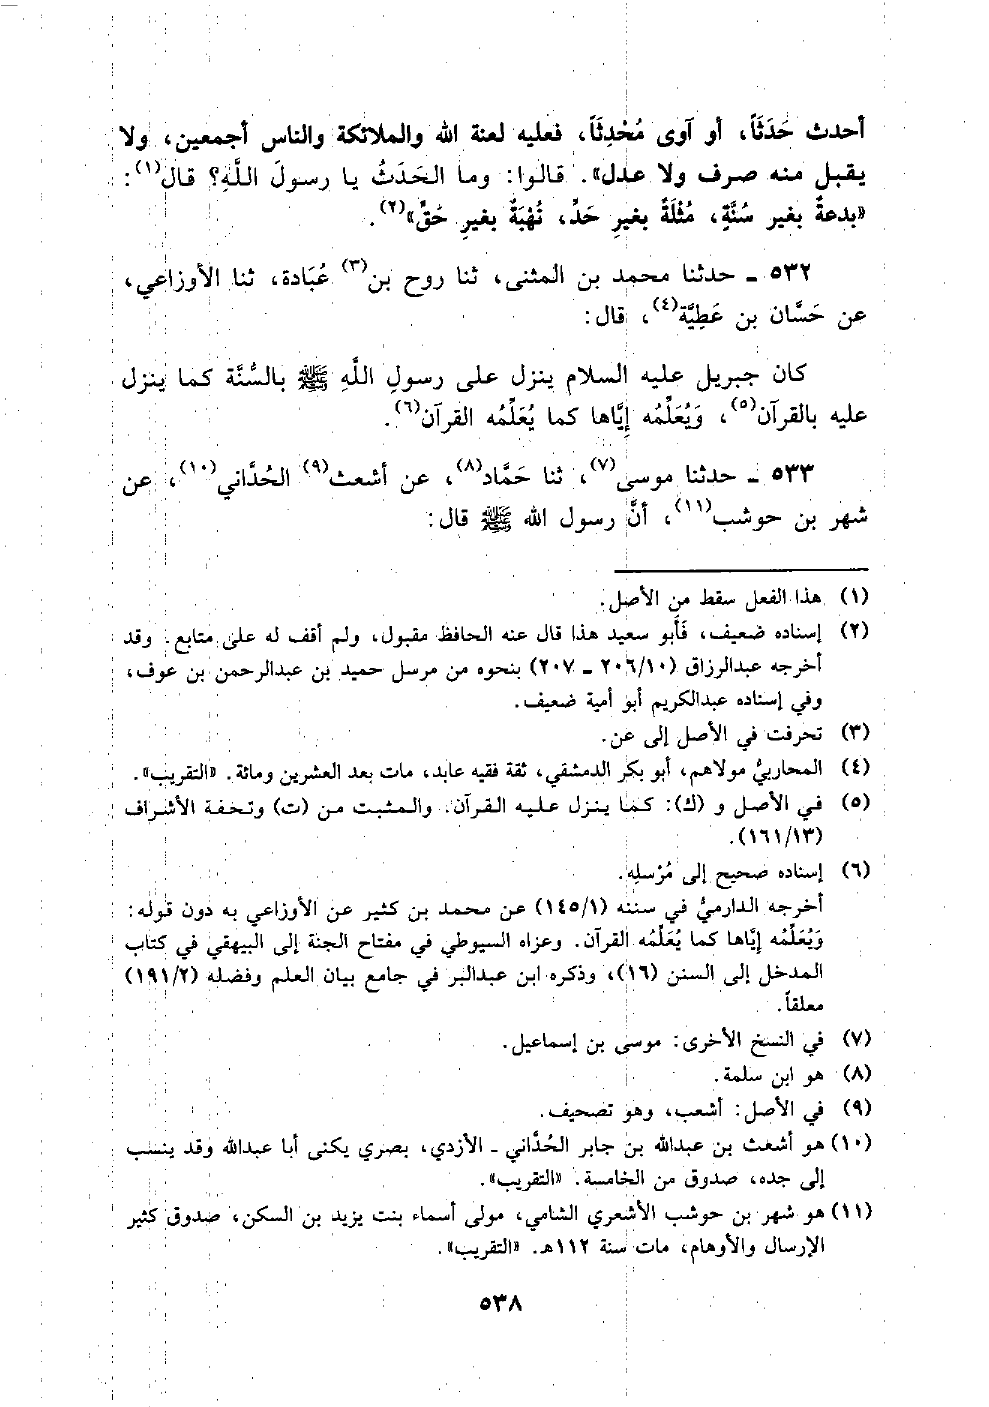 أحدث حَدَثَاً، أو آوى مُحْدِثَاً، فعليه لعنة الله والملائكة والناس أجمعين، ولا
يقبل منه صرف ولا عدل». قالوا: وما الحَدَثُ يا رسولَ اللَّهِ؟ قال(١):
«بدعةٌ بغير سُنَّةٍ، مُثْلَةٌ بغيرِ حَدٍّ، نُهْبَةٌ بغيرِ حُقٍّ»(٢).
٥٣٢ ـ حدثنا محمد بن المثنى، ثنا روح بن(٣) عُبَادة، ثنا الأوزاعي،
عن حَسَّان بن عَطِيَّة(٤)، قال:
كان جبريل عليه السلام ينزل على رسولِ اللَّهِ ﷺ بالسُّنَّة كما ينزل
عليه بالقرآن(٥)، وَيُعَلِّمُه إيَّاها كما يُعَلِّمُه القرآن(٦).
٥٣٣ ـ حدثنا موسى(٧)، ثنا حَمَّاد(٨)، عن أشعث(٩) الحُدَّاني(١٠)، عن
شهر بن حوشب(١١)، أنَّ رسول الله ﷺ قال:
(١) هذا الفعل سقط من الأصل.
(٢) إسناده ضعيف، فَأبو سعيد هذا قال عنه الحافظ مقبول، ولم أقف له على متابع. وقد
أخرجه عبدالرزاق (٢٠٦/١٠ ـ ٢٠٧) بنحوه من مرسل حميد بن عبدالرحمن بن عوف،
وفي إسناده عبدالكريم أبو أمية ضعيف.
(٣) تحرفت في الأصل إلى عن.
(٤) المحاربيُّ مولاهم، أبو بكر الدمشقي، ثقة فقيه عابد، مات بعد العشرين ومائة. «التقريب».
(٥) في الأصل و (ك): كما ينزل عليه القرآن. والمثبت من (ت) وتحفة الأشراف
(١٦١/١٣).
(٦) إسناده صحيح إلى مُرْسلِه.
أخرجه الدارميُّ في سننه (١٤٥/١) عن محمد بن كثير عن الأوزاعي به دون قوله:
وَيُعَلِّمُه إيَّاها كما يُعَلِّمُه القرآن. وعزاه السيوطي في مفتاح الجنة إلى البيهقي في كتاب
المدخل إلى السنن (١٦)، وذكره ابن عبدالبر في جامع بيان العلم وفضله (١٩١/٢)
معلقاً.
(٧) في النسخ الأخرى: موسى بن إسماعيل.
(٨) هو ابن سلمة.
(٩) في الأصل: أشعب، وهو تصحيف.
(١٠) هو أشعث بن عبدالله بن جابر الحُدَّاني ـ الأزدي، بصري يكنى أبا عبدالله وقد ينسب
إلى جده، صدوق من الخامسة. «التقريب».
(١١) هو شهر بن حوشب الأشعري الشامي، مولى أسماء بنت يزيد بن السكن، صدوق كثير
الإرسال والأوهام، مات سنة ١١٢هـ. «التقريب».
٥٣٨